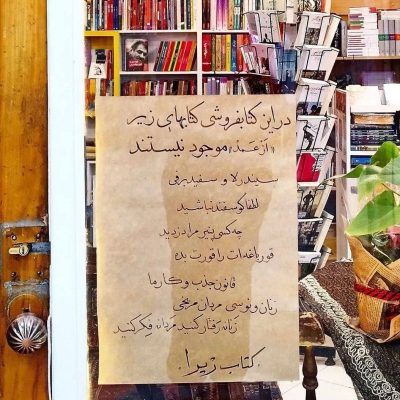 در این کتابفروشی کتابهای زیر
«از عمد» موجود نیستند
سیندرلا و سفیدبرفی
لطفا گوسفند نباشید
چه کسی پنیر مرا دزدید
قورباغه ات را قورت بده
قانون جذب و کارما
زنان ونوسی مردان مریخی
زنانه رفتار کنید مردانه فکر کنید
کتاب زیرا.